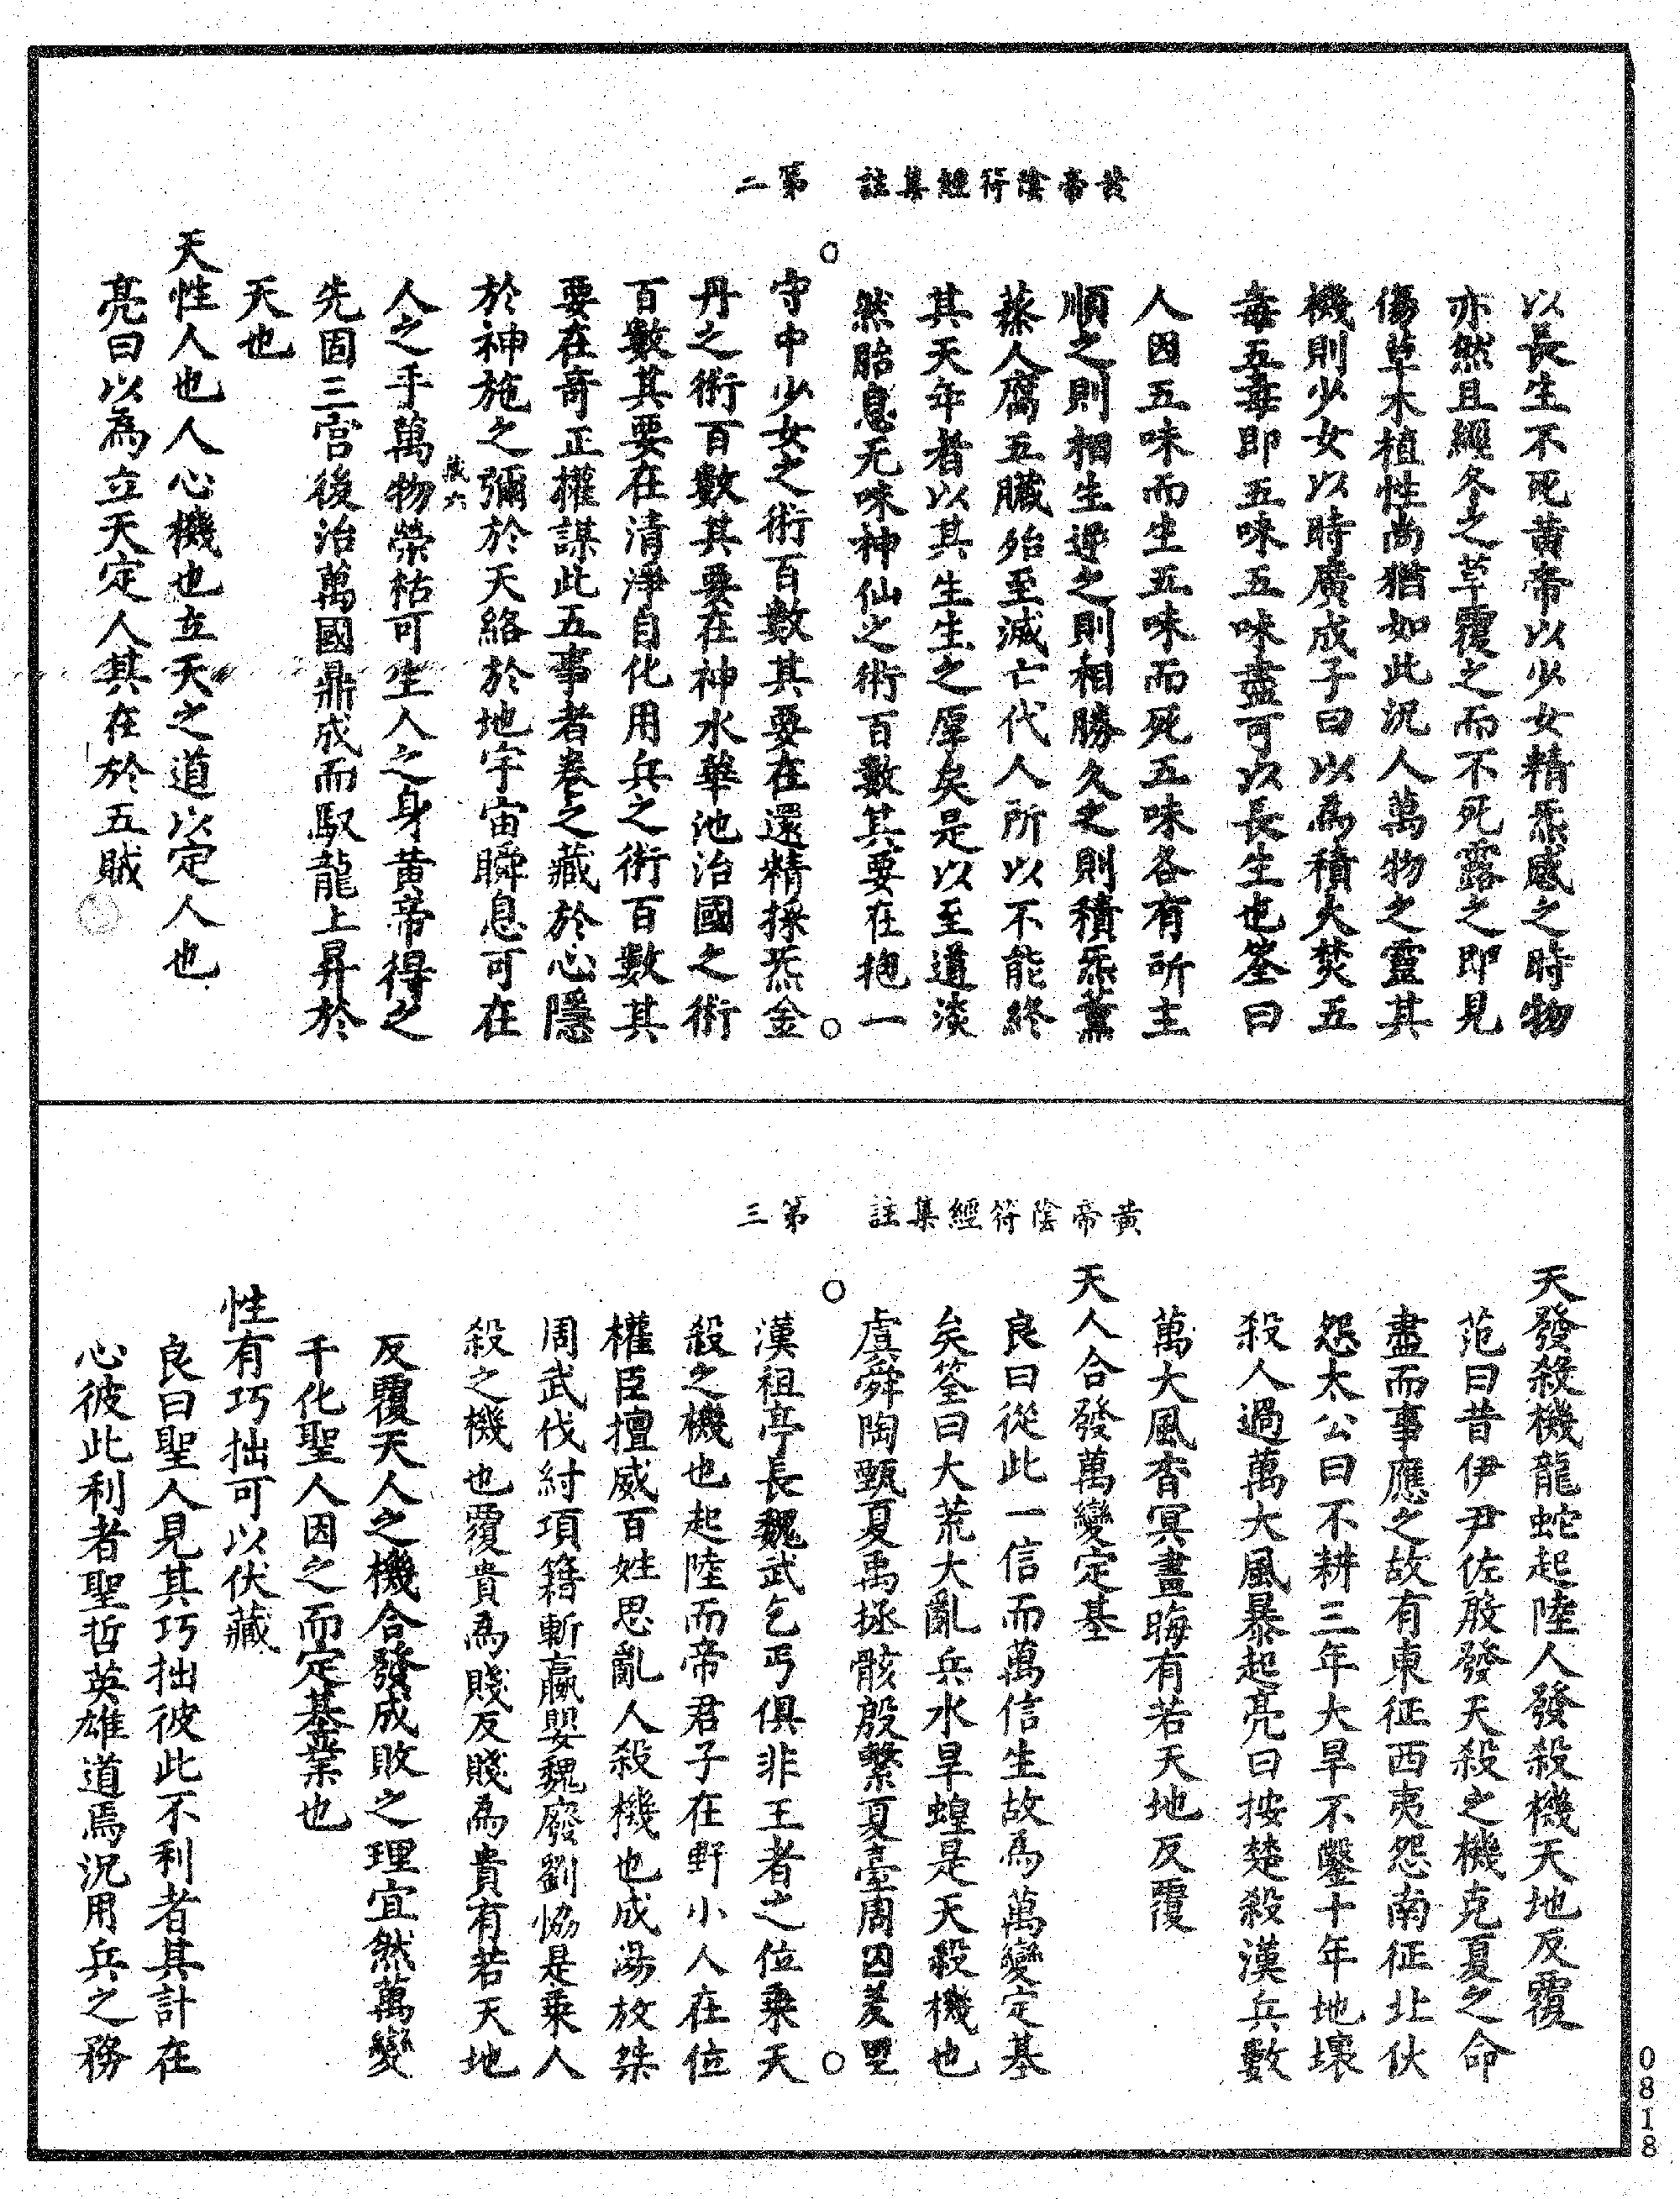 黃帝陰符經集註　第二
以長生不死黃帝以少女精炁感之時物
亦然且經冬之草覆之而不死露之即見
傷草木植性尚猶如此況人萬物之靈其
機則少女以時廣成子曰以為積火焚五
毒五毒即五味五味盡可以長生也筌曰
人因五味而生五味而死五味各有所主
順之則相生逆之則相勝久之則積炁薰
蒸人腐五臟殆至滅亡代人所以不能終
其天年者以其生生之厚矣是以至道淡
然胎息无味神仙之術百數其要在抱一
守中少女之術百數其要在還精採炁金
丹之術百數其要在神水華池治國之術
百數其要在清淨自化用兵之術百數其
要在奇正權謀此五事者卷之藏於心隱
於神施之彌於天絡於地宇宙瞬息可在
藏六
人之手萬物榮枯可生人之身黃帝得之
先固三宮後治萬國鼎成而馭龍上昇於
天也
天性人也人心機也立天之道以定人也
亮曰以為立天定人其在於五賊
黃帝陰符經集註　第三
天發殺機龍蛇起陸人發殺機天地反覆
范曰昔伊尹佐殷發天殺之機克夏之命
盡而事應之故有東征西夷怨南征北伙
怨太公曰不耕三年大旱不鑿十年地壞
殺人過萬大風暴起亮曰按楚殺漢兵數
萬大風杳冥晝晦有若天地反覆
天人合發萬變定基
良曰從此一信而萬信生故為萬變定基
矣筌曰大荒大亂兵水旱蝗是天殺機也
虞舜陶甄夏禹拯骸殷繫夏臺周囚羑里
漢祖亭長魏武乞丐俱非王者之位乘天
殺之機也起陸而帝君子在野小人在位
權臣擅威百姓思亂人殺機也成湯放桀
周武伐紂項籍斬嬴嬰魏廢劉恊是乘人
殺之機也覆貴為賤反賤為貴有若天地
反覆天人之機合發成敗之理宜然萬變
千化聖人因之而定基業也
性有巧拙可以伏藏
良曰聖人見其巧拙彼此不利者其計在
心彼此利者聖哲英雄道焉況用兵之務
0818